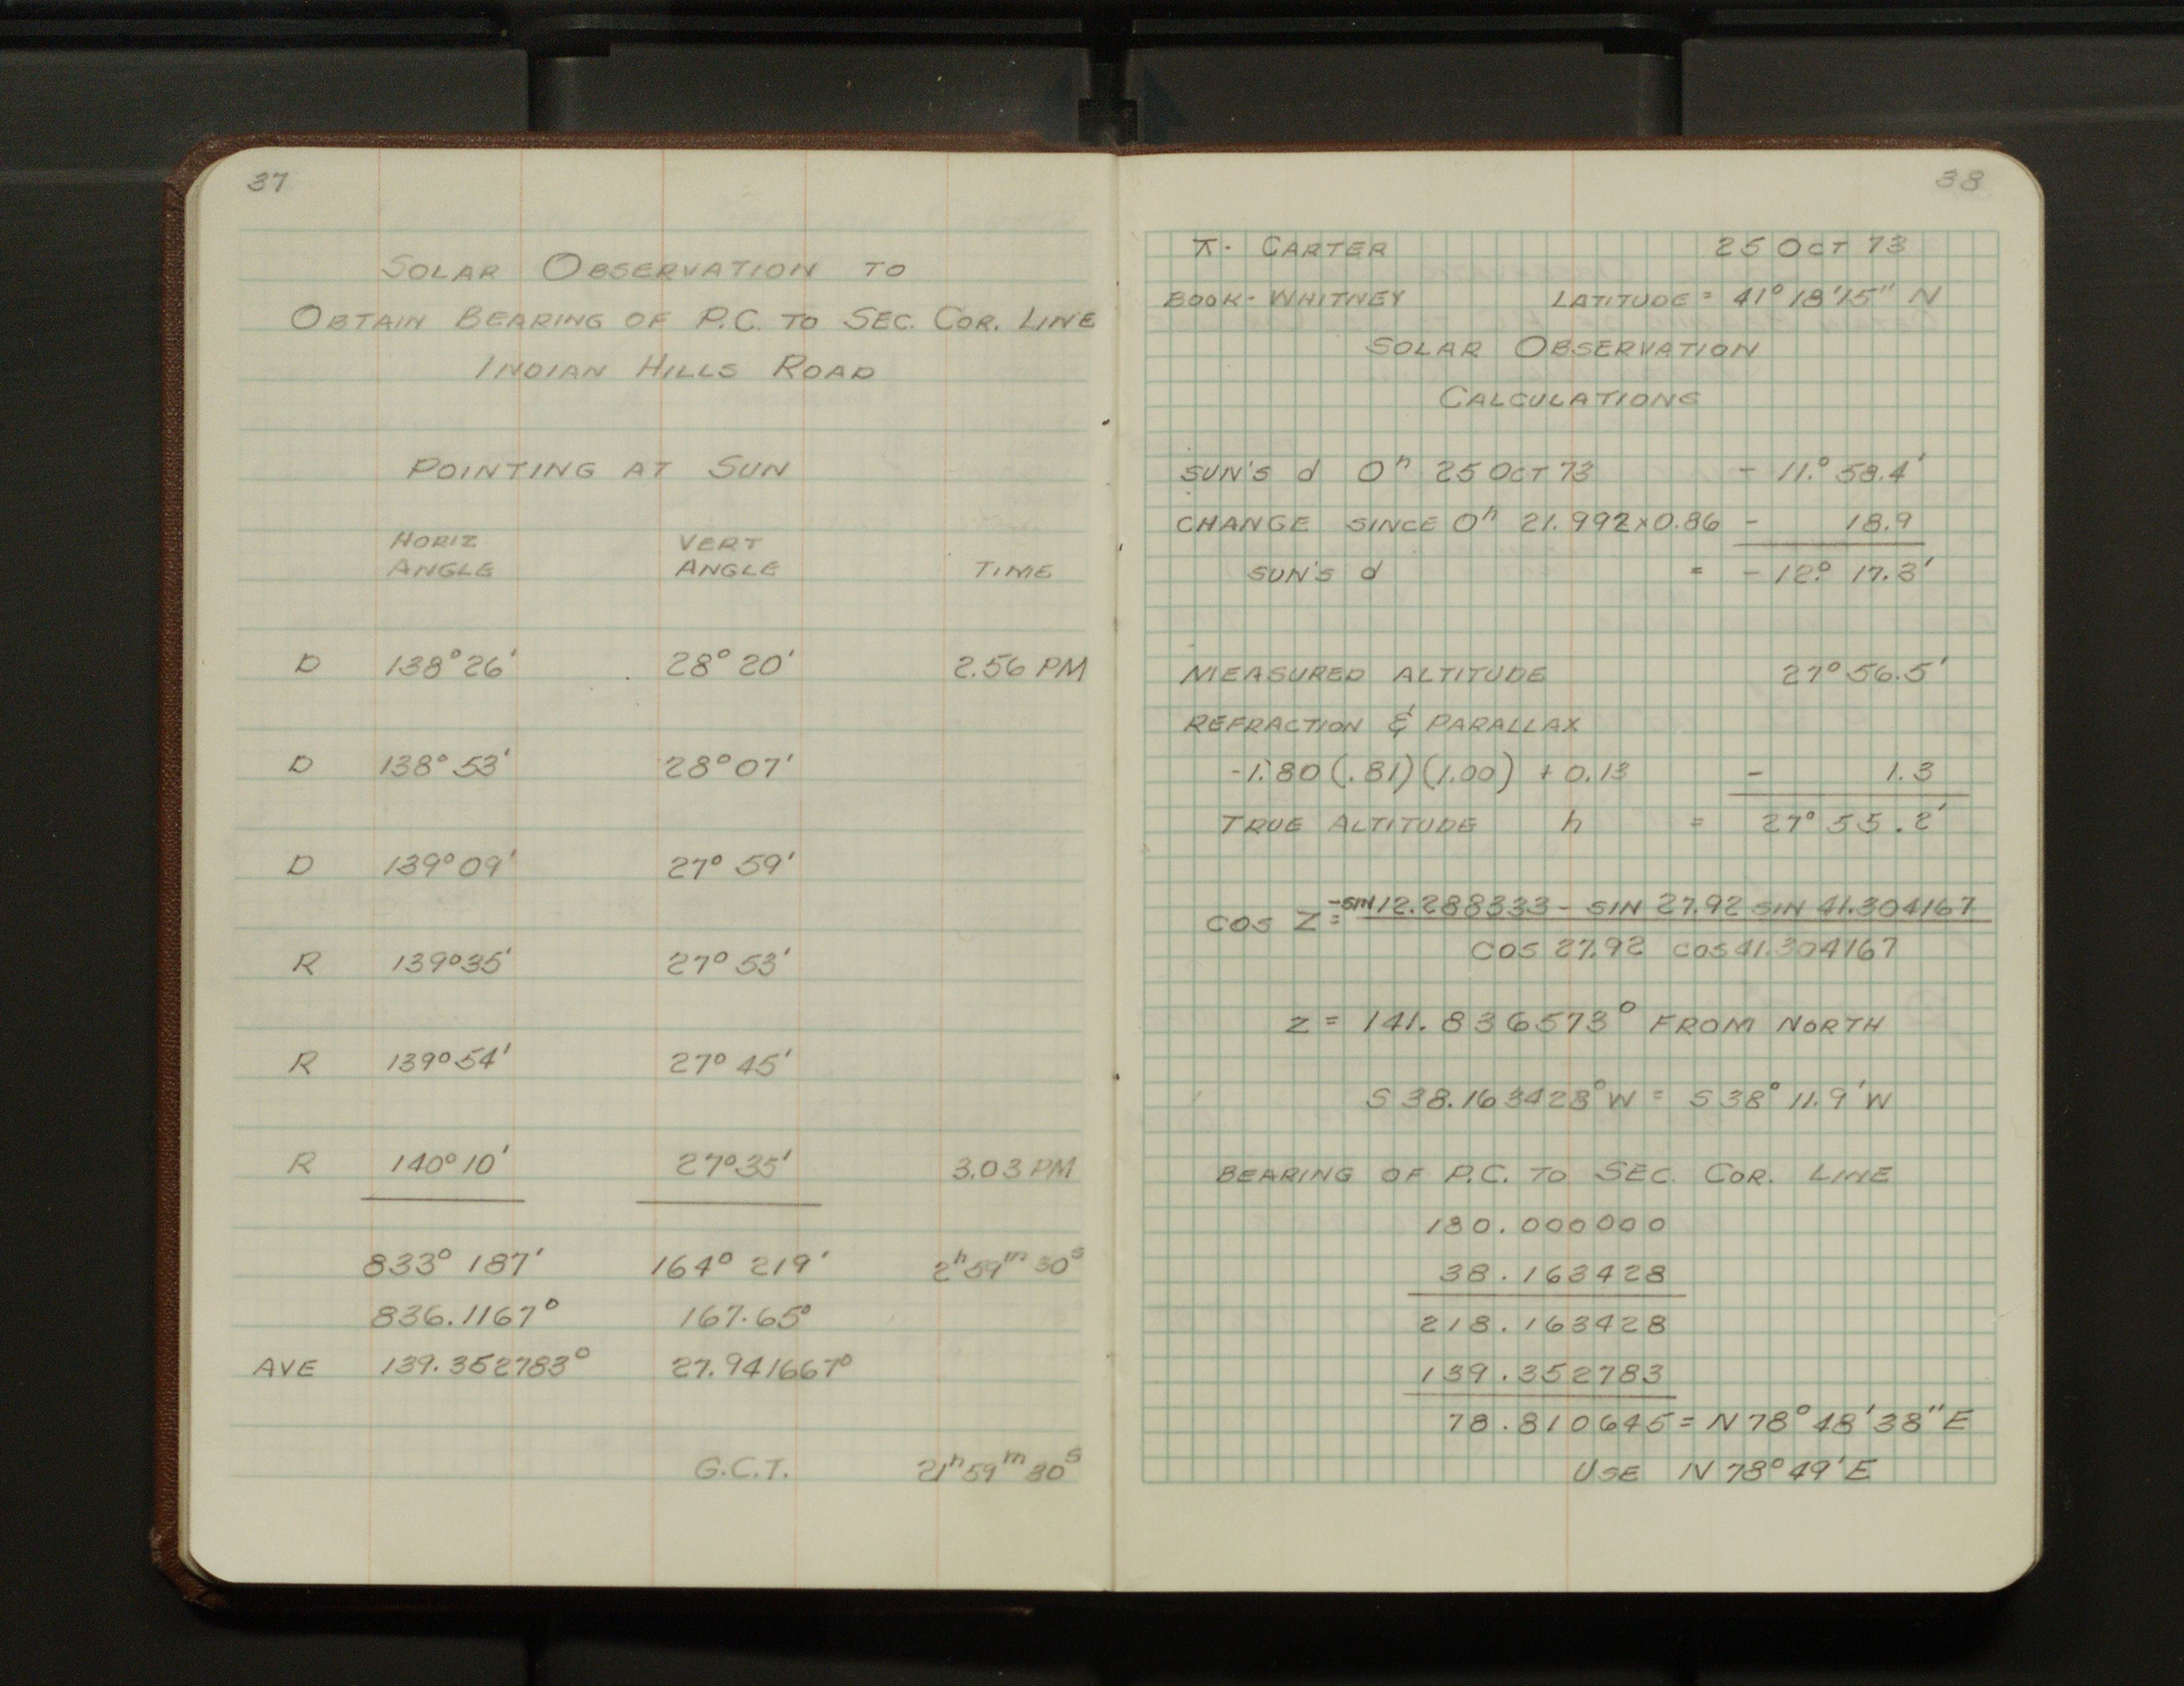 37
SOLAR OBSERVATION TO
OBTAIN BEARING OF P.C. TO SEC. COR. LINE
INDIAN HILLS ROAD
POINTING AT SUN
HORIZ ANGLE VERT ANGLE TIME
D 138° 26' 28° 20' 2.56 PM
D 138° 53' 28° 07'
D 139° 09' 27° 59'
R 139° 35' 27° 53'
R 139° 54' 27° 45'
R 140° 10' 27° 35' 3.03 PM
833° 187' 164° 219' 2h 59m 30s
836.1167° 167.65°
AVE 139.352783° 27.941667°
G.C.T. 21h 59m 30s
38
⊼ - CARTER 25 OCT 73
BOOK - WHITNEY LATITUDE = 41° 18' 15" N
SOLAR OBSERVATION
CALCULATIONS
SUN'S d 0h 25 OCT 73 - 11.° 58.4'
CHANGE SINCE 0h 21.992 x 0.86 - 18.9
SUN'S d = - 12.° 17.3'
MEASURED ALTITUDE 27° 56.5'
REFRACTION & PARALLAX
-1.80 (.81) (1.00) + 0.13 - 1.3
TRUE ALTITUDE h = 27° 55.2'
COS Z = -SIN 12.288333 - SIN 27.92 SIN 41.304167
COS 27.92 COS 41.304167
Z = 141.836573° FROM NORTH
S 38.163428° W = S 38° 11.9' W
BEARING OF P.C. TO SEC. COR. LINE
180.000000
38.163428
218.163428
139.352783
78.810645 = N 78° 48' 38" E
USE N 78° 49' E